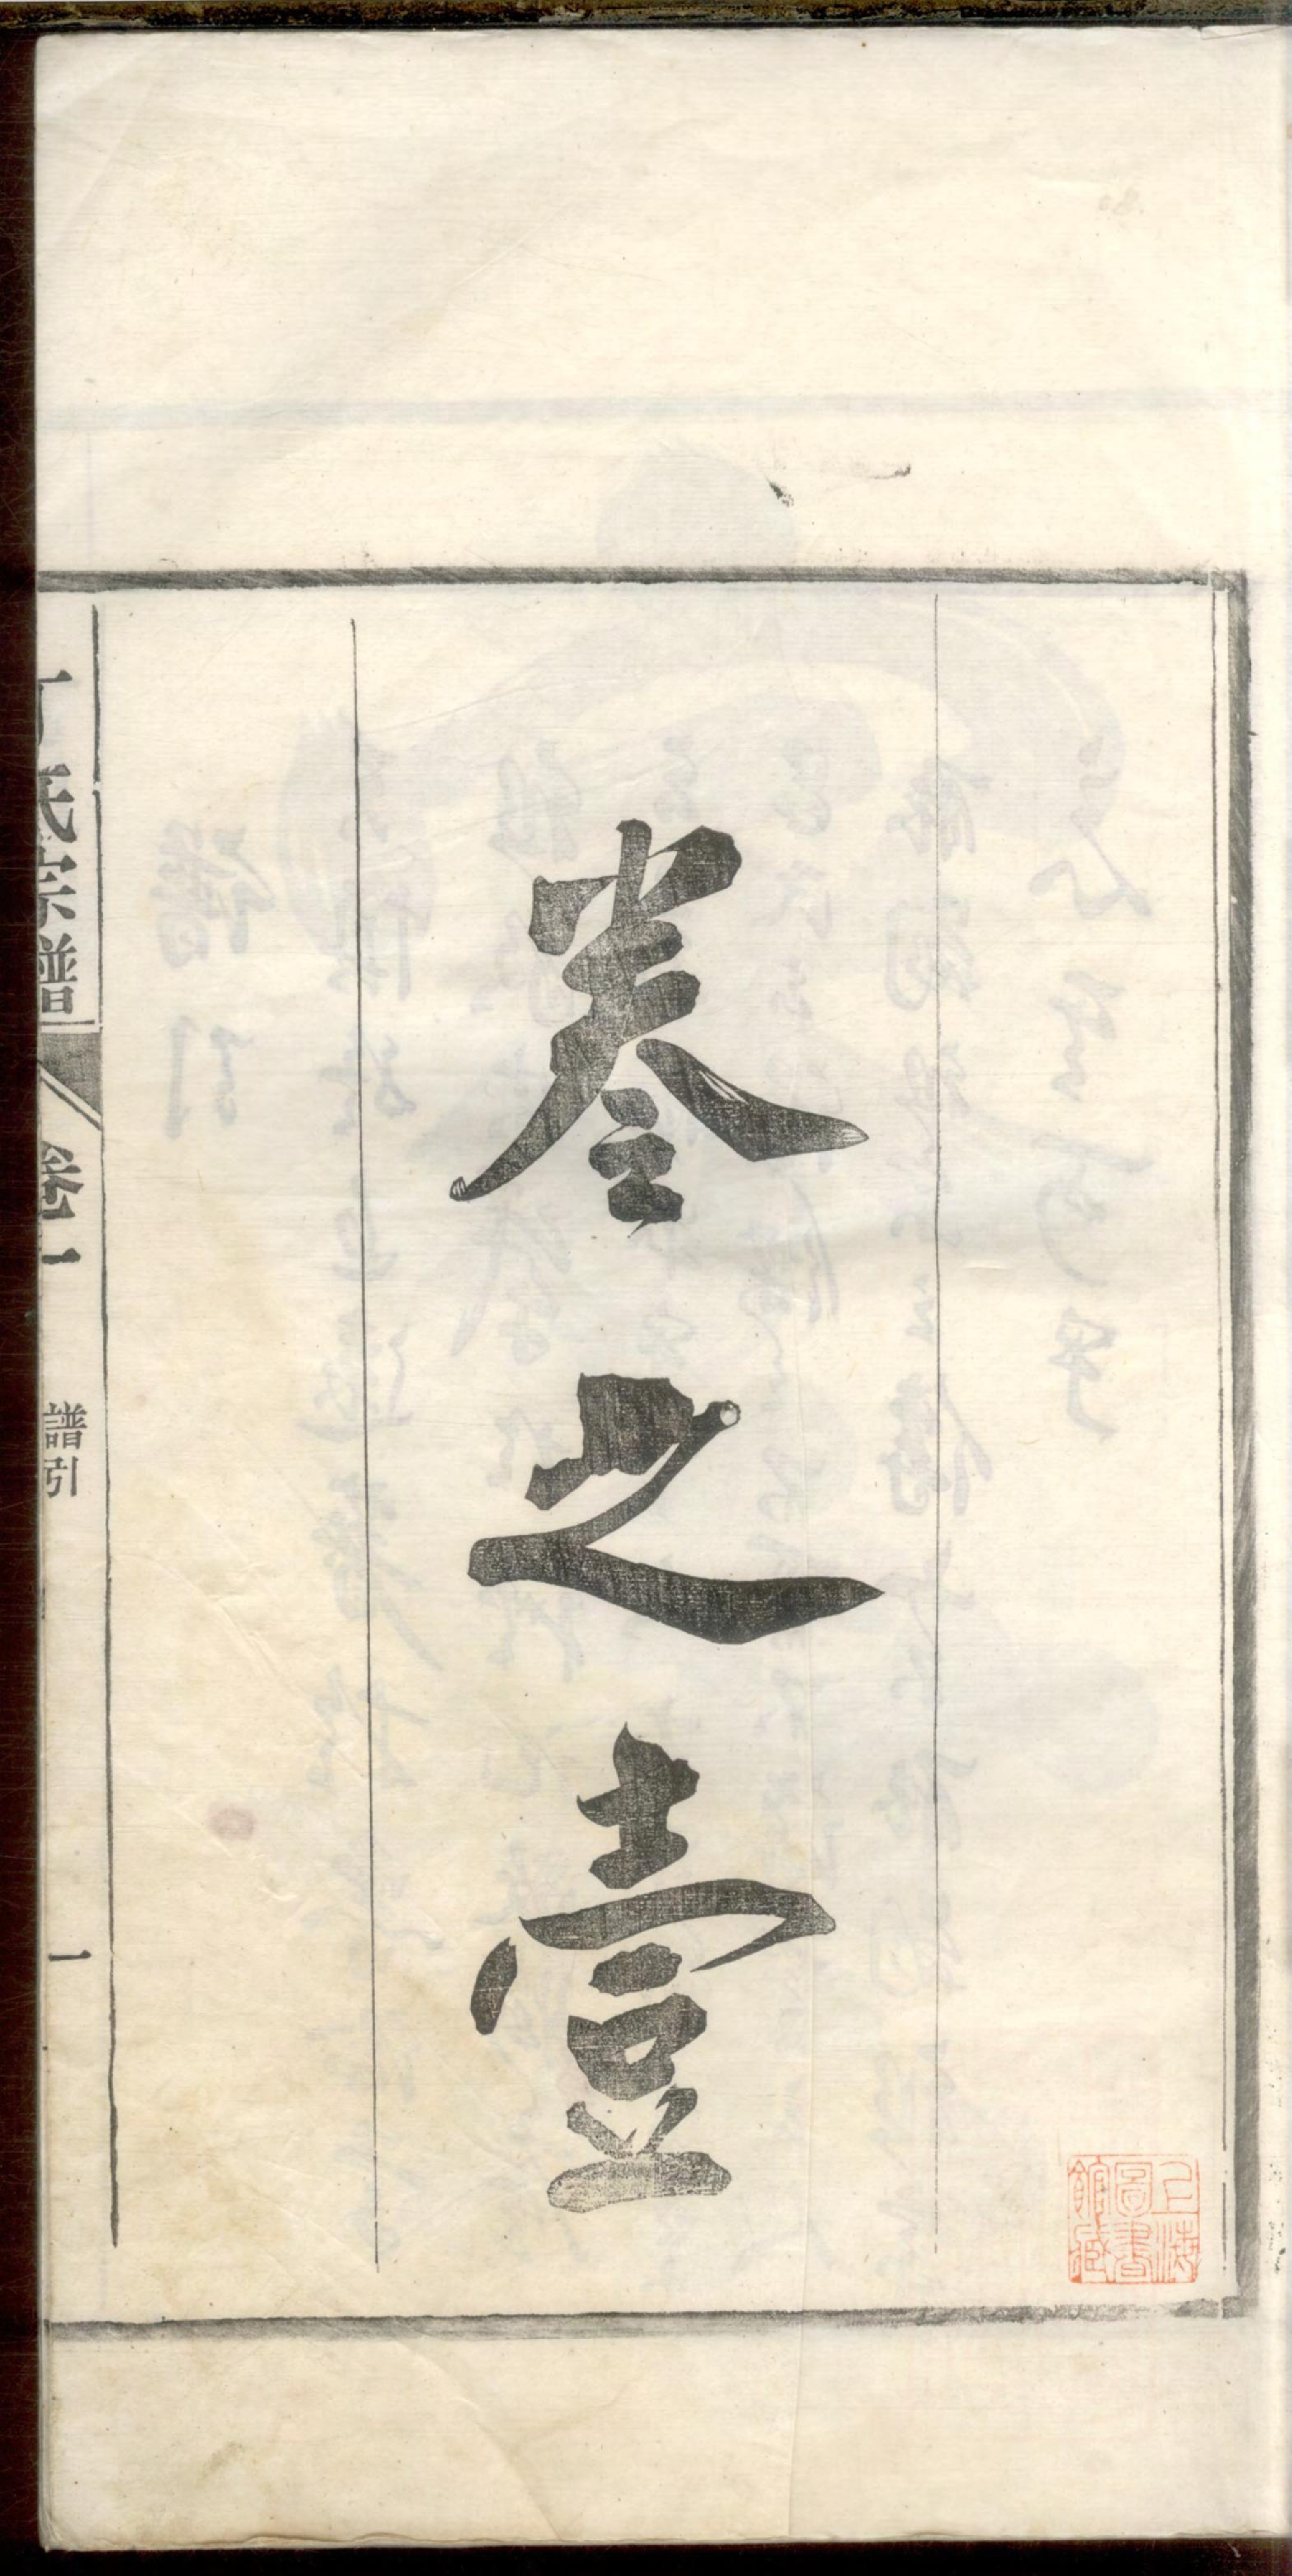 卷之壹
上海
圖書
館藏
丁氏宗譜
卷一
譜引
一